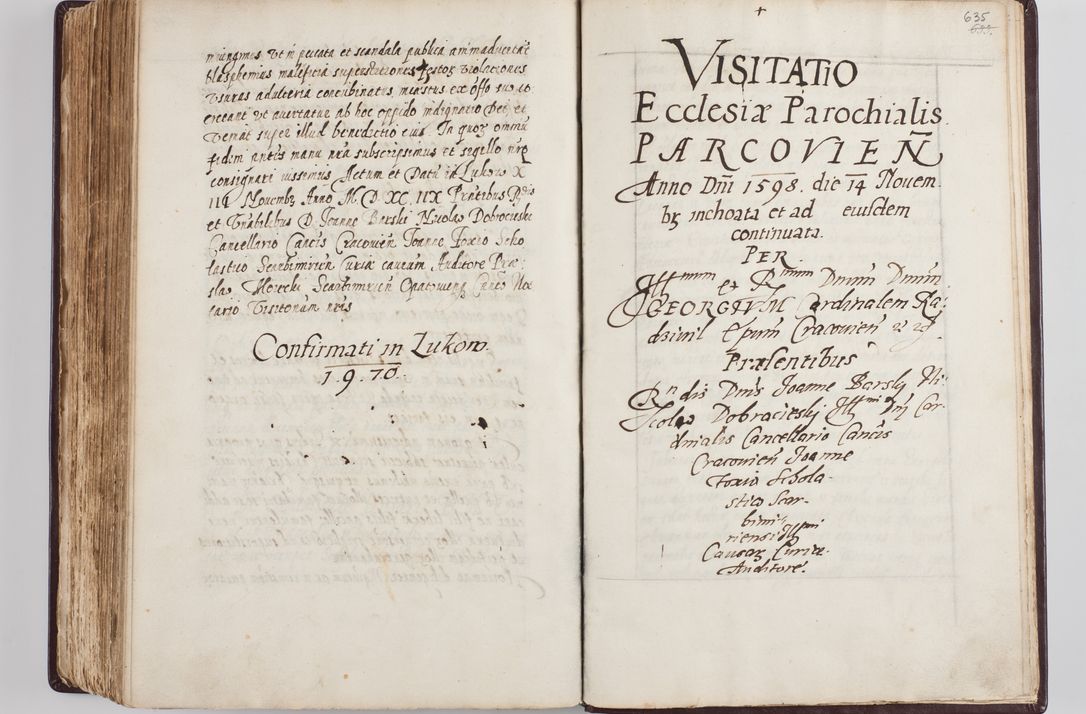 miungmus vt in peccata et scandala publica animaduertāt
blasphemius maleficia superstitiones festoȝ violationes
vsuras adulteria concubinatus incæstus ex offo suo co
erceant vt auertatur ab hoc oppido indignatio Dei, et
veniat super illud benedictio eius. In quoȝ omniū
fidem pntes manu nrā subscripsimus et sigillo nrō
consignari iussimus Actum et Datū in Lukow X
IIII Nouembȝ Anno M. D. XC. IIX Prntibus Rdis
et Vnabilibus D. Joanne Borski Nicolao Dobrocieski
Cancellario Cancis Cracouien Joanne Foxio Scho
lastico Scarbimirien Curiæ causarum Auditore Præ
slao Scarbimirien Opatouieñ Canco No
tario Visitonum nris
Confirmati in Lukow.
1.9.70.
635
VISITATIO
Ecclesiæ Parochialis
PARCOVIEÑ
Anno Dñi 1598. die 14 Nouem
bȝ inchoata et ad eiusdem
continuata.
PER.
Illmum et Rmum Dnum Dnum
GEORGIVM Cardinalem Ra
dziuil Epum Cracouien
Præsentibus
Rndis Dnis Joanne Barsky Ni
colao Dobrociesky Illmi Dnj Car
dinalis Cancellario Cancis
Cracouien Joanne
Foxio Schola
stico Scar
bimi
riensi Illmi
Causaȝ Curiæ
Auditore.